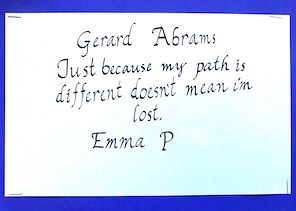 Gerard Abrams
Just because my path is
different doesn't mean i'm
lost.
Emma P